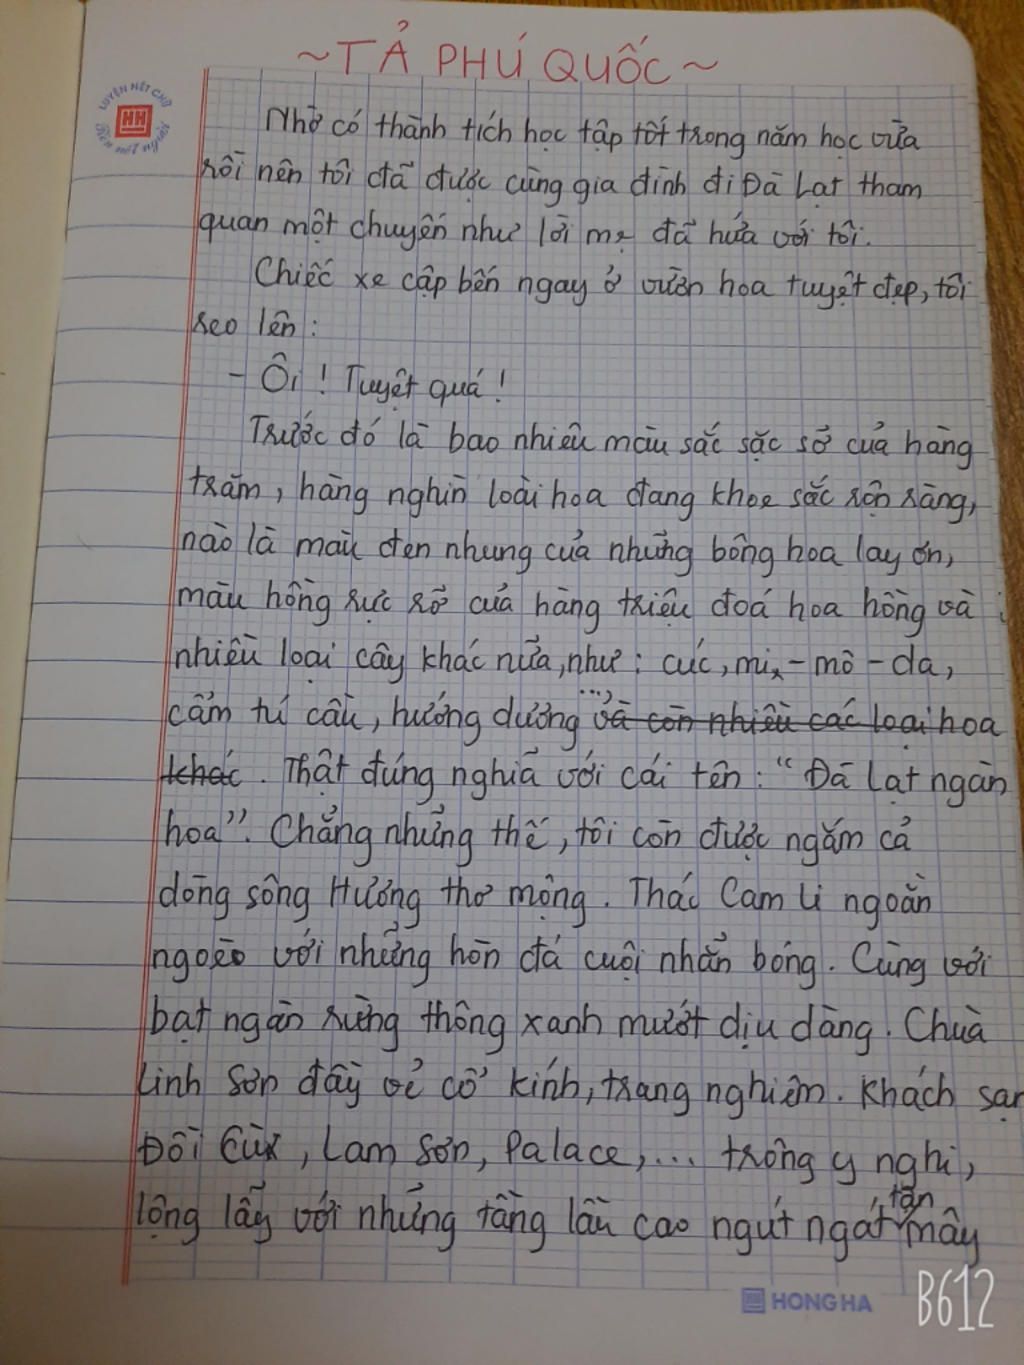 ~TẢ PHÚ QUỐC~
LUYỆN NÉT CHỮ
HH
Rèn nét người
Nhờ có thành tích học tập tốt trong năm học vừa
rồi nên tôi đã được cùng gia đình đi Đà Lạt tham
quan một chuyến như lời mẹ đã hứa với tôi.
Chiếc xe cập bến ngay ở vườn hoa tuyệt đẹp, tôi
reo lên:
- Ôi! Tuyệt quá!
Trước đó là bao nhiêu màu sắc sặc sỡ của hàng
trăm, hàng nghìn loài hoa đang khoe sắc rộn ràng,
nào là màu đen nhung của những bông hoa lay ơn,
màu hồng rực rỡ của hàng triệu đoá hoa hồng và
nhiều loại cây khác nữa, như: cúc, mi-mô-da,
cẩm tú cầu, hướng dương ..., và còn nhiều các loại hoa
khác. Thật đúng nghĩa với cái tên: “Đà Lạt ngàn
hoa”. Chẳng những thế, tôi còn được ngắm cả
dòng sông Hương thơ mộng. Thác Cam Li ngoằn
ngoèo với những hòn đá cuội nhẵn bóng. Cùng với
bạt ngàn rừng thông xanh mướt dịu dàng. Chùa
Linh Sơn đầy vẻ cổ kính, trang nghiêm. Khách sạn
Đồi Cùx, Lam Sơn, Palace,... trông y nghi,
lộng lẫy với những tầng lầu cao ngút ngát tận mây
HONG HA
B612